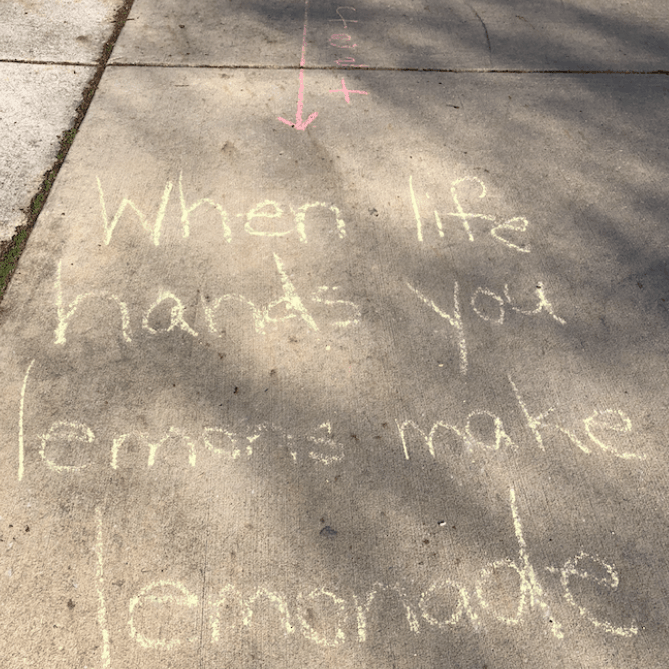 When life
hands you
lemons make
lemonade